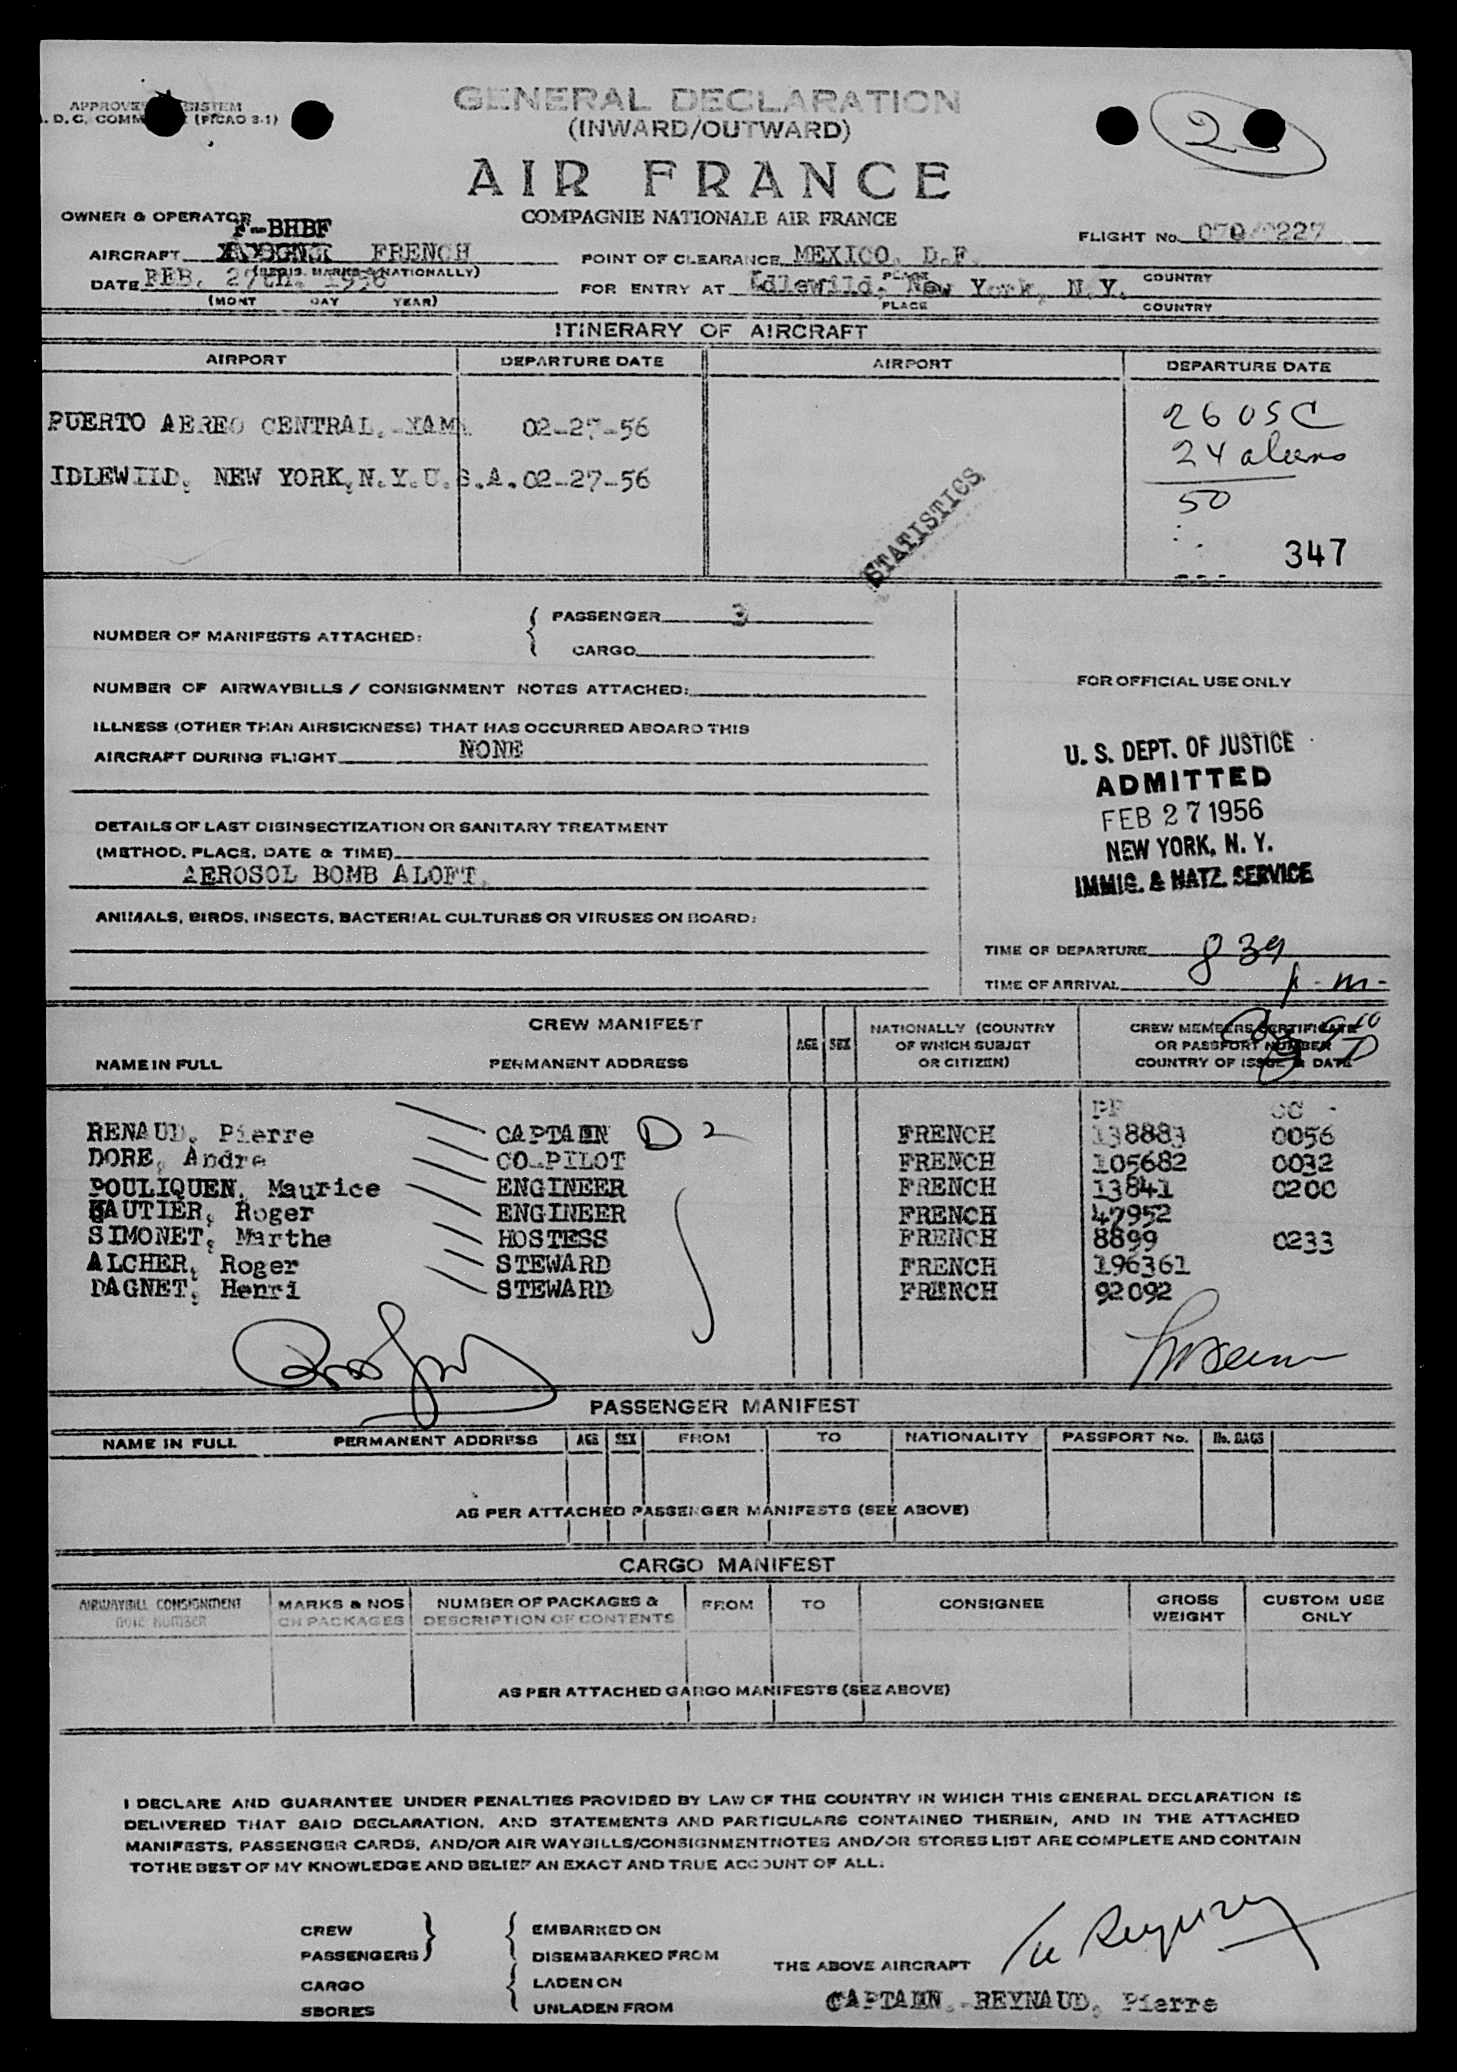 GENERAL DECLARATION
(INWARD/OUTWARD)
AIR FRANCE
COMPAGNIE NATIONALE AIR FRANCE
OWNER & OPERATOR
F-BHBF
FLIGHT No.
AIRCRAFT FRENCH
(REGIS. MARKS & NATIONALLY)
POINT OF CLEARANCE MEXICO, D.F.
PLACE COUNTRY
DATE FEB. 27th, 1956
(MONT DAY YEAR)
FOR ENTRY AT Idlewild, New York, N.Y.
PLACE COUNTRY
ITINERARY OF AIRCRAFT
AIRPORT DEPARTURE DATE AIRPORT DEPARTURE DATE
PUERTO AEREO CENTRAL. 02-27-56
IDLEWILD, NEW YORK, N.Y. U.S.A. 02-27-56
26 USC
24 aliens
50
347
STATISTICS
NUMBER OF MANIFESTS ATTACHED:
PASSENGER 3
CARGO
NUMBER OF AIRWAYBILLS / CONSIGNMENT NOTES ATTACHED:
ILLNESS (OTHER THAN AIRSICKNESS) THAT HAS OCCURRED ABOARD THIS
AIRCRAFT DURING FLIGHT NONE
DETAILS OF LAST DISINSECTIZATION OR SANITARY TREATMENT
(METHOD, PLACE, DATE & TIME)
AEROSOL BOMB ALOFT.
ANIMALS, BIRDS, INSECTS, BACTERIAL CULTURES OR VIRUSES ON BOARD:
FOR OFFICIAL USE ONLY
U. S. DEPT. OF JUSTICE
ADMITTED
FEB 27 1956
NEW YORK, N. Y.
IMMIG. & NATZ. SERVICE
TIME OF DEPARTURE 8 39
TIME OF ARRIVAL p-m-
CREW MANIFEST
NAME IN FULL PERMANENT ADDRESS AGE SEX NATIONALLY (COUNTRY OF WHICH SUBJET OR CITIZEN) CREW MEMBERS CERTIFICATE OR PASSPORT NUMBER COUNTRY OF ISSUE & DATE
PP CC
RENAUD, Pierre CAPTAIN D 2 FRENCH 138883 0056
DORE, Andre CO-PILOT FRENCH 105682 0032
POULIQUEN, Maurice ENGINEER FRENCH 13841 0200
GAUTIER, Roger ENGINEER FRENCH 47952
SIMONET, Marthe HOSTESS FRENCH 8899 0233
ALCHER, Roger STEWARD FRENCH 196361
DAGNET, Henri STEWARD FRENCH 92092
PASSENGER MANIFEST
NAME IN FULL PERMANENT ADDRESS AGE SEX FROM TO NATIONALITY PASSPORT No. No. BAGS
AS PER ATTACHED PASSENGER MANIFESTS (SEE ABOVE)
CARGO MANIFEST
AIRWAYBILL CONSIGNMENT NOTE NUMBER MARKS & NOS ON PACKAGES NUMBER OF PACKAGES & DESCRIPTION OF CONTENTS FROM TO CONSIGNEE GROSS WEIGHT CUSTOM USE ONLY
AS PER ATTACHED CARGO MANIFESTS (SEE ABOVE)
I DECLARE AND GUARANTEE UNDER PENALTIES PROVIDED BY LAW OF THE COUNTRY IN WHICH THIS GENERAL DECLARATION IS
DELIVERED THAT SAID DECLARATION, AND STATEMENTS AND PARTICULARS CONTAINED THEREIN, AND IN THE ATTACHED
MANIFESTS, PASSENGER CARDS, AND/OR AIR WAYBILLS/CONSIGNMENTNOTES AND/OR STORES LIST ARE COMPLETE AND CONTAIN
TOTHE BEST OF MY KNOWLEDGE AND BELIEF AN EXACT AND TRUE ACCOUNT OF ALL.
CREW EMBARKED ON
PASSENGERS DISEMBARKED FROM
THE ABOVE AIRCRAFT
CARGO LADEN ON
SBORES UNLADEN FROM
CAPTAIN. REYNAUD, Pierre